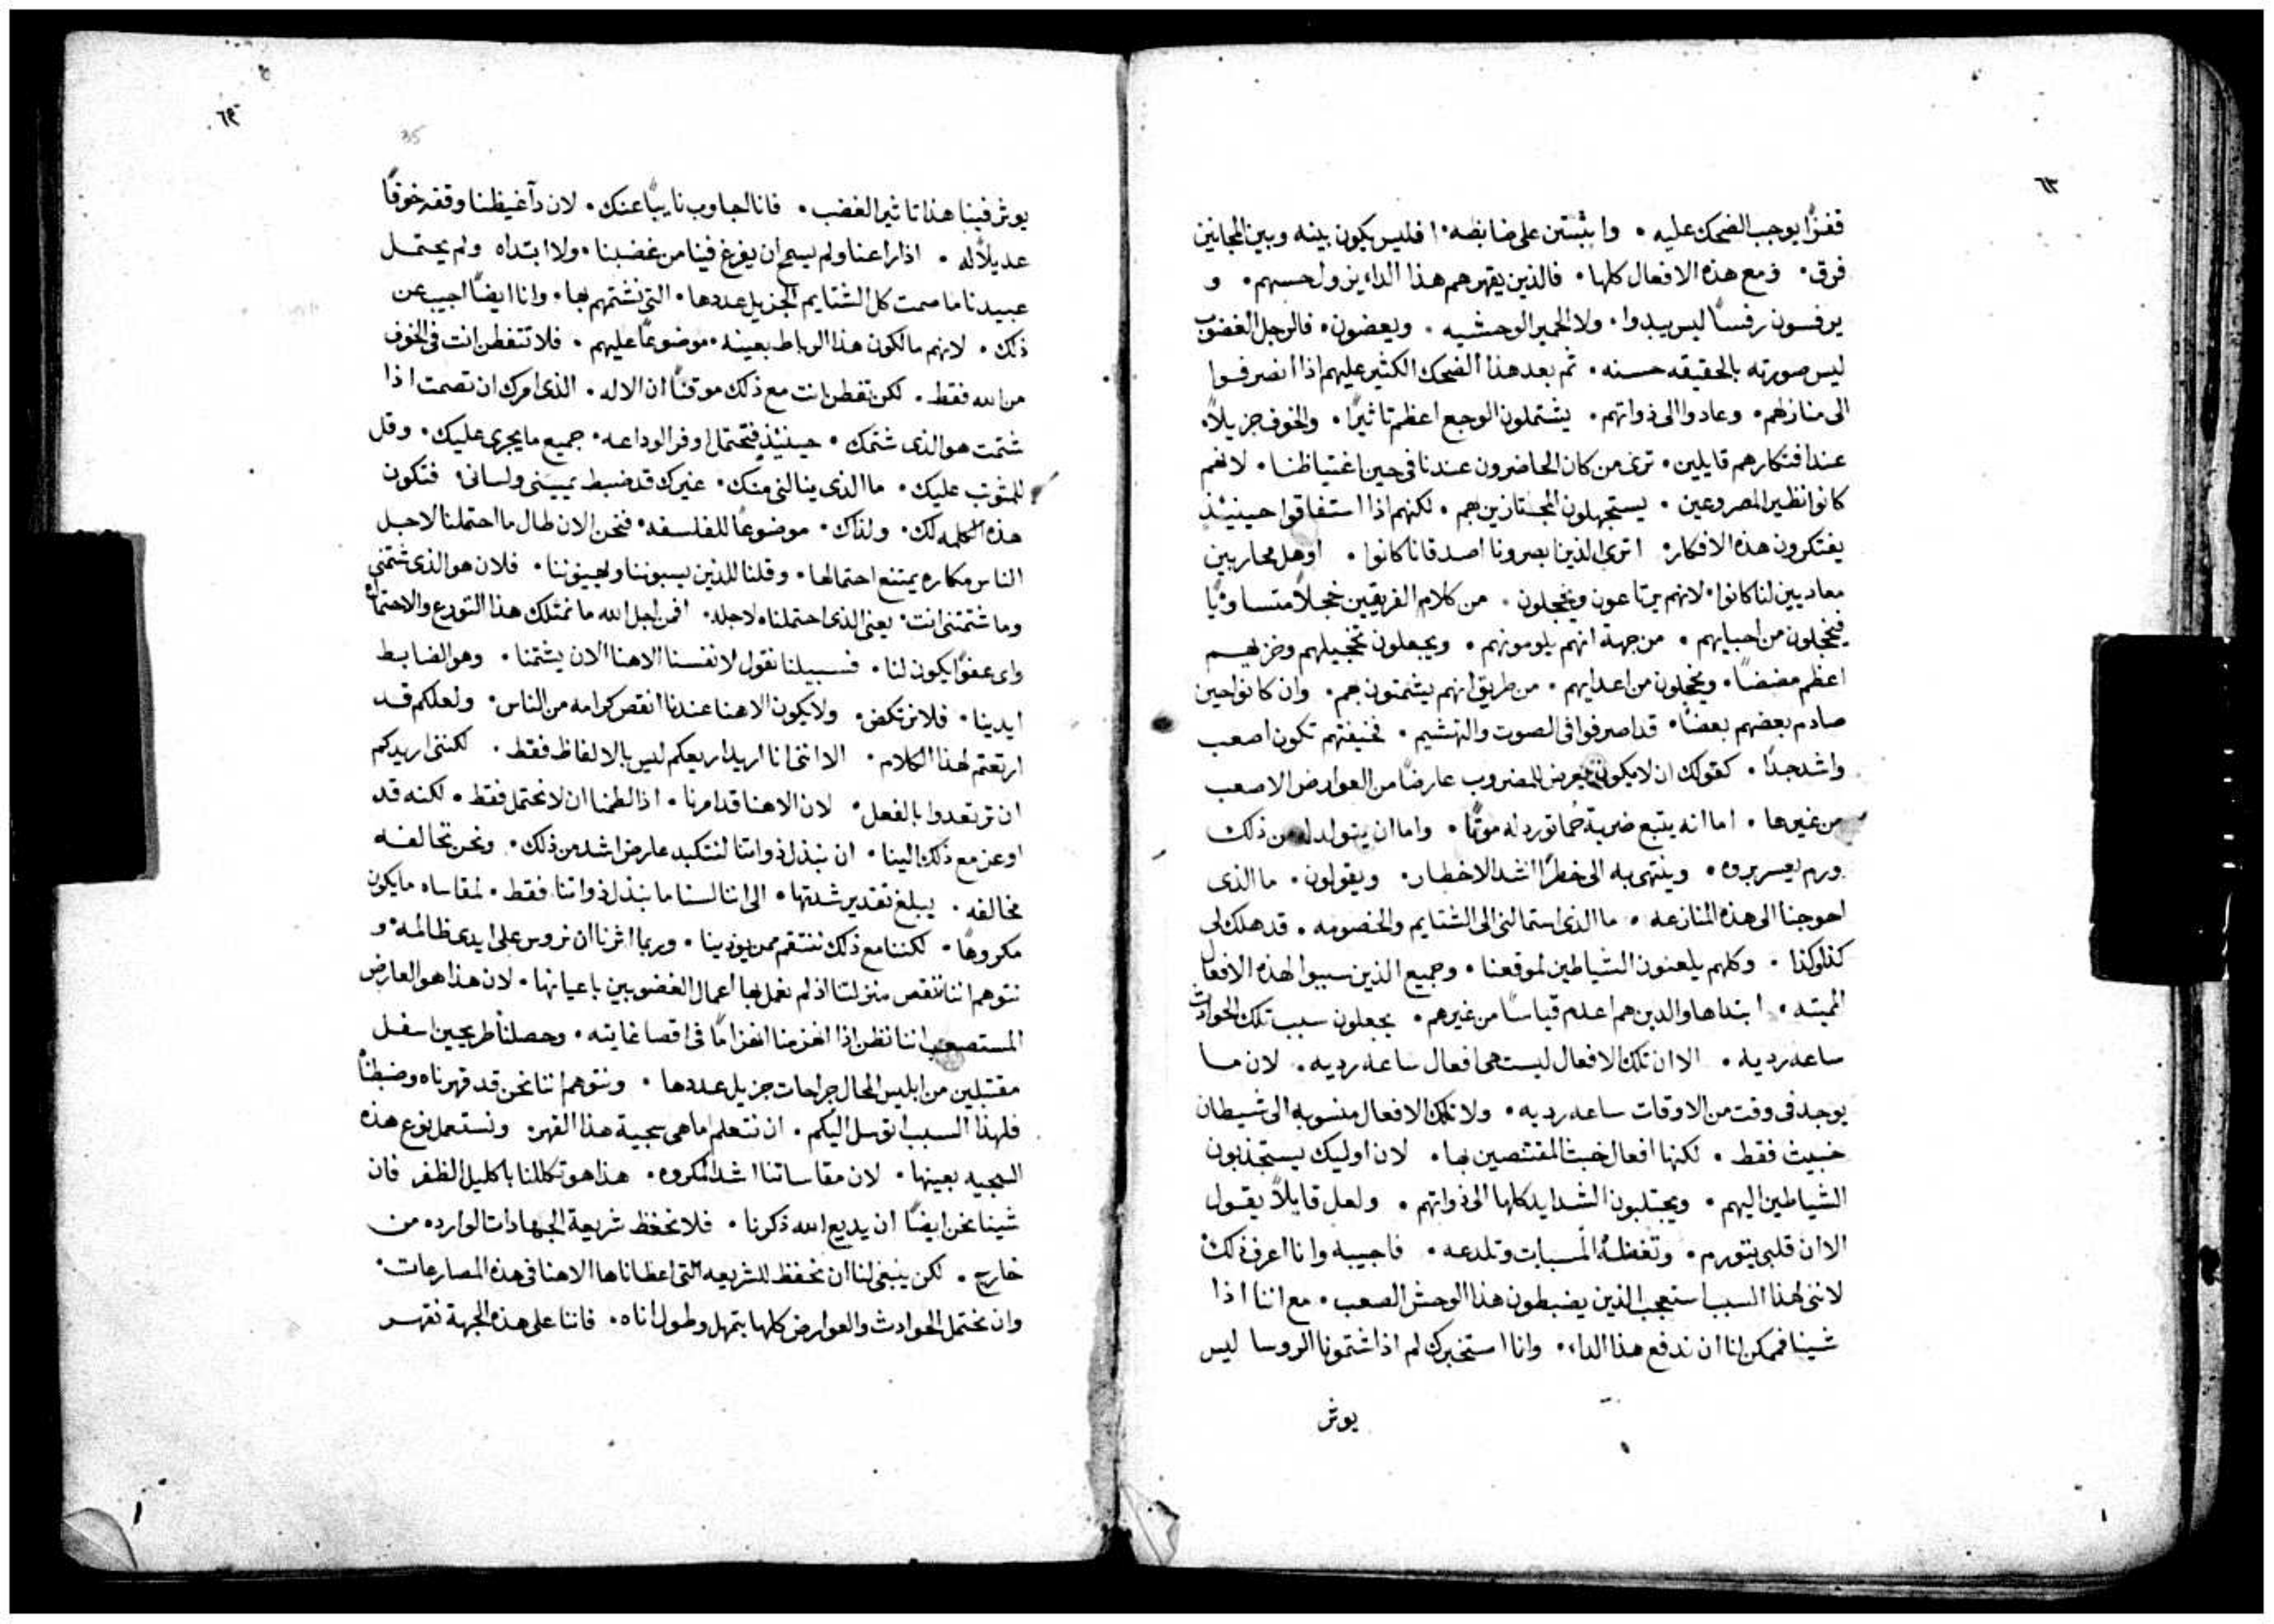 ٦٣
قفزًا يوجب الضحك عليه . وابثبتن على ضابضه . افليس يكون بينه وبين المجانين
فرق . ومع هذه الافعال كلها . فالذين يقهرهم هذا الداء يزول حسهم . و
يرفسون رفسًا ليس يبدوا . ولا الحمير الوحشيه . ويعضون . فالرجل الغضوب
ليس صورته بالحقيقه حسنه . ثم بعد هذا الضحك الكثير عليهم اذا انصرفوا
الى منازلهم . وعادوا الى ذواتهم . يشتملون الوجع اعظم تاثيرًا . والخوف جزيلاً .
عند افتكارهم قايلين . ترى من كان الحاضرون عندنا في حين اغتياظنا . لانهم
كانوا نظير المصروعين . يستجهلون المجتازين بهم . لكنهم اذا استفاقوا حينيئذٍ
يفتكرون هذه الافكار . اترى الذين بصرونا اصدقانا كانوا . او هل محاربين
معاديين لنا كانوا . لانهم يرتاعون ويخجلون . من كلام الفريقين خجلاً متساويًا
فيخجلون من احبايهم . من جهة انهم يلومونهم . ويجعلون تخجيلهم وخزيهم
اعظم مضضًا . ويخجلون من اعدايهم . من طريق انهم يشمتون بهم . وان كانوا حين
صادم بعضهم بعضًا . قد اصرفوا في الصوت والتهشيم . فخيفتهم تكون اصعب
واشد جدًا . كقولك ان لا يكون يعرض للمضروب عارضًا من العوارض الاصعب
من غيرها . اما انه يتبع ضربة حُما تورد له موتًا . واما ان يتولد له من ذلك
ورم يعسر بروه . وينتهي به الى خطرًا اشد الاخطار . ويقولون . ما الذي
احوجنا الى هذه المنازعه . ما الذي استمالني الى الشتايم والخصومه . قد هلك لي
كذا وكذا . وكلهم يلعنون الشياطين لموقعنا . وجميع الذين سببوا لهذه الافعال
المبتد . ابتداها والدين هم اعدم قياسًا من غيرهم . يجعلون سبب تلك الحوادث
ساعه رديه . الا ان تلك الافعال ليست هي افعال ساعه رديه . لان ما
يوجد في وقت من الاوقات ساعه رديه . ولا تلك الافعال منسوبه الى شيطان
خبيث فقط . لكنها افعال خبث المقتنصين بها . لان اوليك يستجذبون
الشياطين اليهم . ويجتلبون الشدايد كلها الى ذواتهم . ولعل قايلاً يقول
الا ان قلبي يتورم . وتغظه المسبات وتلدعه . فاجيبه وانا اعرف ذلك
لانني لهذا السبب استعجب الذين يضبطون هذا الوحش الصعب . مع اننا اذا
شينا فممكن لنا ان ندفع هذا الداء . وانا استخبرك لم اذا شتمونا الروسا ليس
يوثر
٦٤
35
يوثر فينا هذا تاثير الغضب . فانا اجاوب نايبًا عنك . لان دآ غيظنا وقفه خوفًا
عديلاً له . اذا راعنا ولم يسمح ان يفرغ فينا من غضبنا . ولا ابتداه ولم يحتمل
عبيدنا ما صمت كل الشتايم الجزيل عددها . التي نشتمهم بها . وانا ايضًا اجيب عن
ذلك . لانهم مالكون هذا الرباط بعينه . موضوعًا عليهم . فلا تتفطن انت في الخوف
من الله فقط . لكن تفطن انت مع ذلك موقنًا ان الاله . الذي امرك ان تصمت اذا
شتمت هو الذي شتمك . حينيئذٍ فتحتمل اوفر الوداعه . جميع ما يجري عليك . وقل
للمثوب عليك . ما الذي ينالني منك . غيرك قد ضبط يميني ولساني . فتكون
هذه الكلمه لك . ولذاك . موضوعًا للفلسفه . فنحن الان طال ما احتملنا لاجل
الناس مكاره يمتنع احتمالها . وقلنا للذين يسبوننا ويهينوننا . فلان هو الذي شتمني
وما شتمتني انت . يعني الذي احتملناه لاجله . افمن اجل الله ما نمتلك هذا التورع والاحتمال
واي عفوًا يكون لنا . فسبيلنا نقول لانفسنا الاهنا الان يشتمنا . وهو الضابط
ايدينا . فلا نرتكض . ولا يكون الاهنا عندنا انقص كرامه من الناس . ولعلكم قد
ارتعتم لهذا الكلام . الا انني انا اريد اريعكم ليس بالالفاظ فقط . لكنني اريدكم
ان ترتعدوا بالفعل . لان الاهنا قد امرنا . اذا لطمنا ان لا نحتمل فقط . لكنه قد
اوعز مع ذلك الينا . ان نبذل ذواتنا لنتكبد عارض اشد من ذلك . ونحن نخالفه
مخالفه . يبلغ تقدير شدتها . الى اننا لسنا ما نبذل ذواتنا فقط . لمقاساه ما يكون
مكروهًا . لكننا مع ذلك ننتقم ممن يوذينا . وربما اثرنا ان نروس على ايدي ظالمه . و
نتوهم اننا ننقص منزلتنا اذ لم نعمل بها اعمال الغضوبين باعيانها . لان هذا هو العارض
المستصعب اننا نظن اذا انهزمنا انهزامًا في اقصا غايته . وحصلنا طريحين اسفل
مقتبلين من ابليس المحال جراحات جزيل عددها . ونتوهم اننا نحن قد قهرناه وضبطنا
فلهذا السبب اتوسل اليكم . ان نتعلم ما هي سجية هذا القهر . ونستعمل نوع هذه
السجيه بعينها . لان مقاساتنا اشد المكروه . هذا هو تكللنا باكليل الظفر فان
شينا نحن ايضًا ان يديع الله ذكرنا . فلا نحفظ شريعة الجهادات الوارده من
خارج . لكن ينبغي لنا ان نحفظ الشريعه التي اعطاناها الاهنا في هذه المصارعات .
وان نحتمل الحوادث والعوارض كلها بتمهل وطول اناه . فاننا على هذه الجهة نقهر